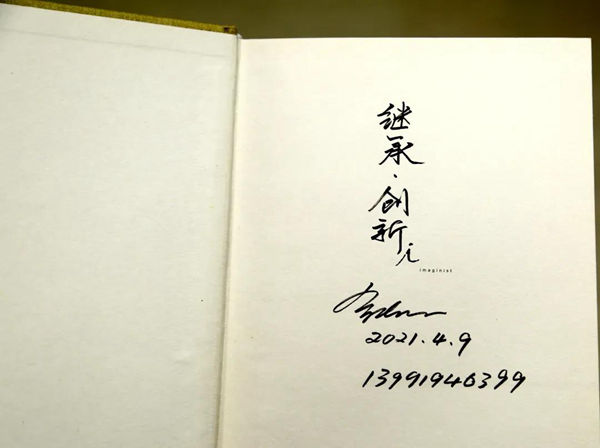 继承·创新
i
imaginist
2021.4.9
13991946399